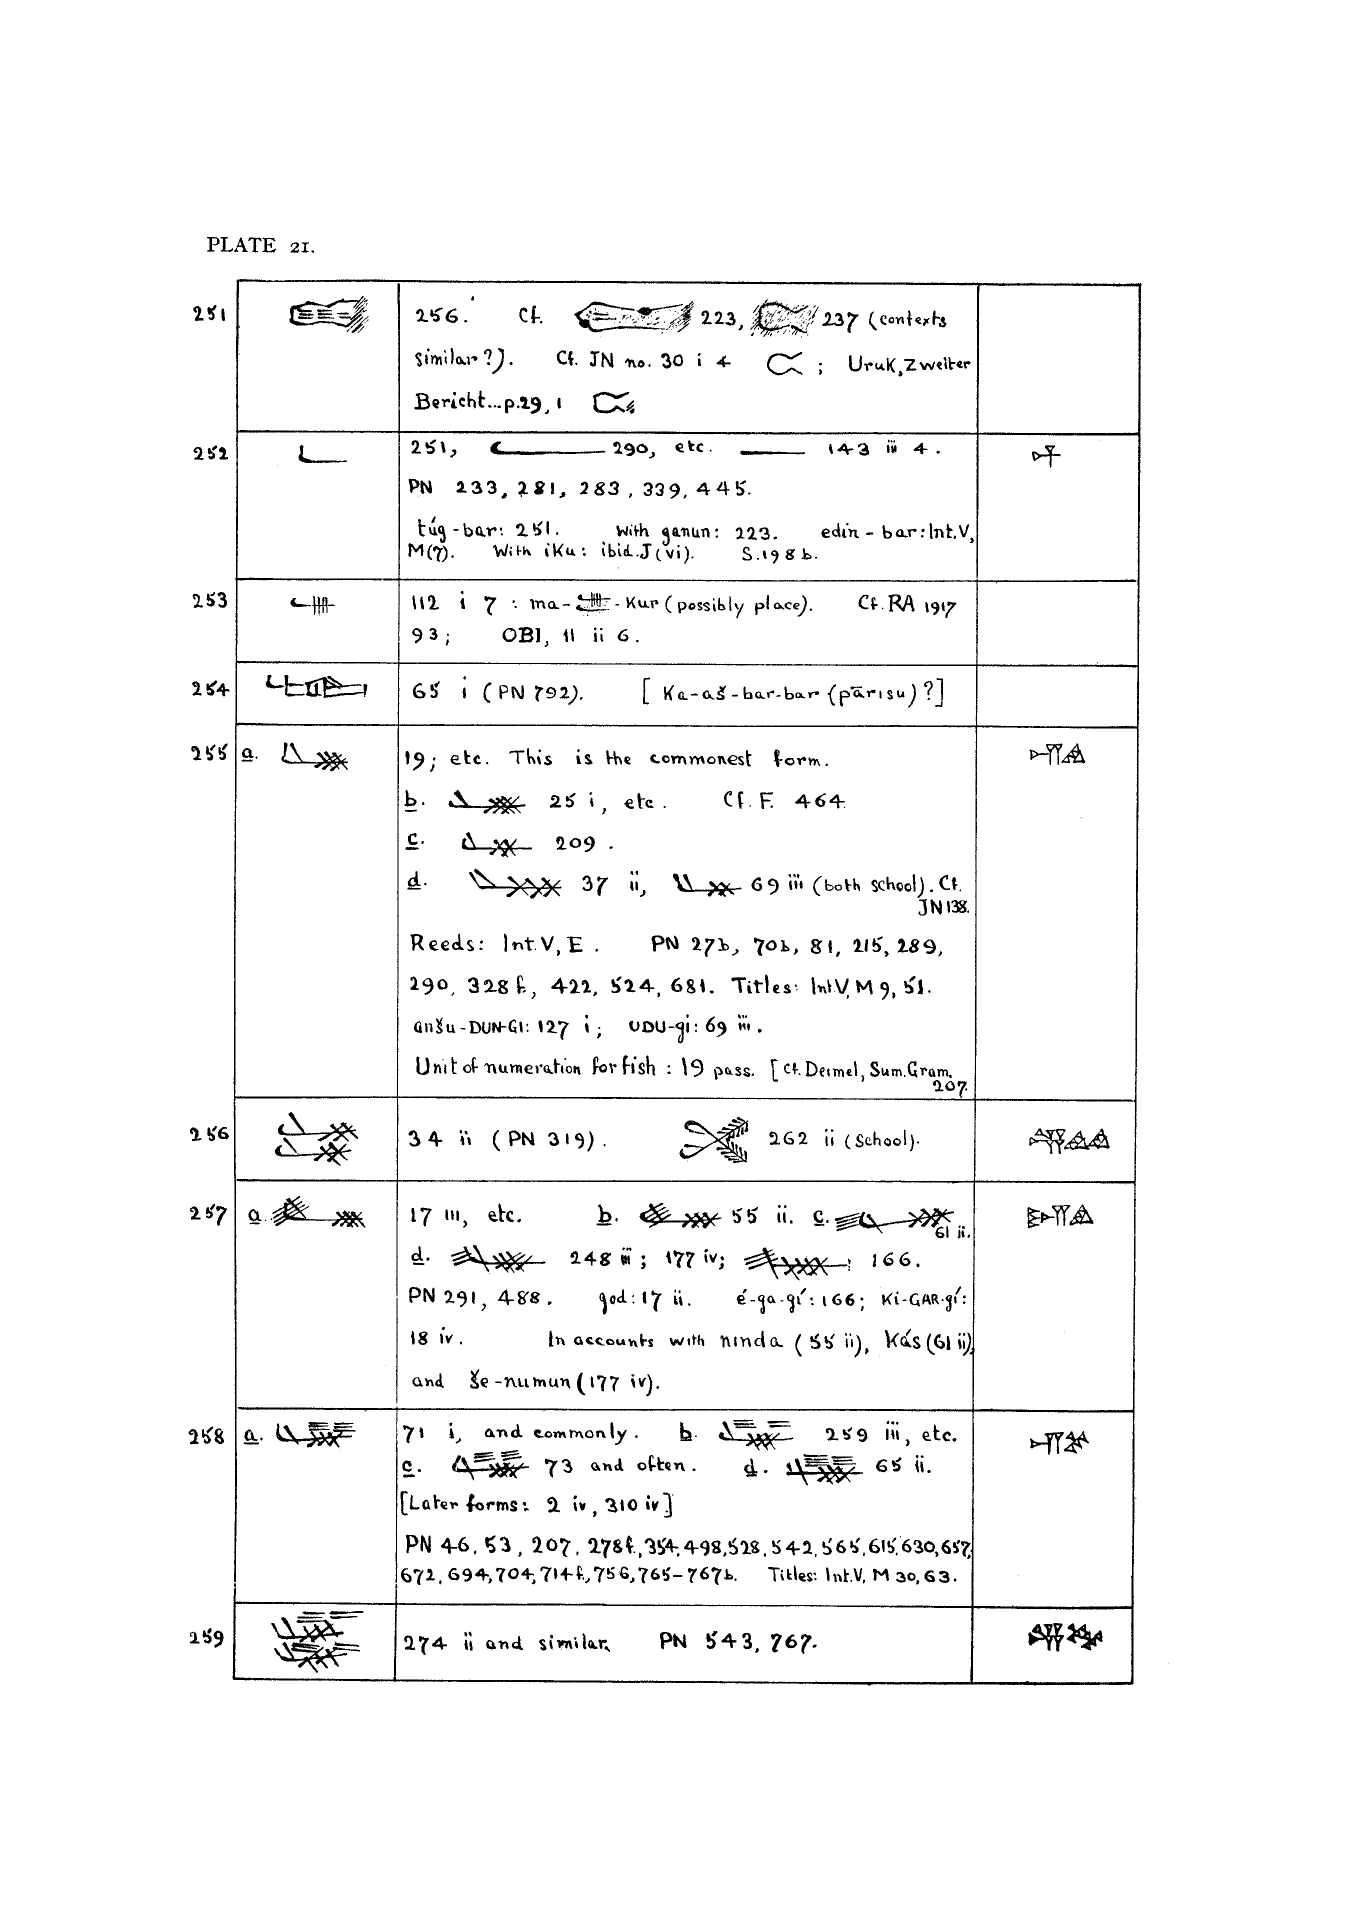 PLATE 21.
251 256. Cf. 223, 237 (contexts
similar?). Cf. JN no. 30 i 4 ; Uruk, Zweiter
Bericht... p.29, 1
252 251, 290, etc. 143 iii 4.
PN 233, 281, 283, 339, 445.
túg-bar: 251. With ganun: 223. edin-bar: Int.V,
M(7). With iku: ibid. J(vi). S.198b.
253 112 i 7 : ma- -kur (possibly place). Cf. RA 1917
93; OBI, 11 ii 6.
254 65 i (PN 792). [Ka-aš-bar-bar (pārisu)?]
255 a. 19; etc. This is the commonest form.
b. 25 i, etc. Cf. F. 464
c. 209.
d. 37 ii, 69 iii (both school). Cf.
JN 138.
Reeds: Int.V, E. PN 27b, 70b, 81, 215, 289,
290, 328f., 422, 524, 681. Titles: Int.V, M 9, 51.
anšu-DUN-GI: 127 i; UDU-gi: 69 iii.
Unit of numeration for fish: 19 pass. [Cf. Deimel, Sum. Gram.
207.
256 34 ii (PN 319). 262 ii (School).
257 a. 17 iii, etc. b. 55 ii. c.
61 ii.
d. 248 iii; 177 iv; 166.
PN 291, 488. god: 17 ii. é-ga-gí: 166; Ki-GAR-gí:
18 iv. In accounts with ninda (55 ii), kás (61 ii),
and še-numun (177 iv).
258 a. 71 i, and commonly. b. 259 iii, etc.
c. 73 and often. d. 65 ii.
[Later forms: 2 iv, 310 iv]
PN 46, 53, 207, 278f., 354, 498, 528, 542, 565, 615, 630, 657,
672, 694, 704, 714f., 756, 765-767b. Titles: Int.V, M 30, 63.
259 274 ii and similar. PN 543, 767.